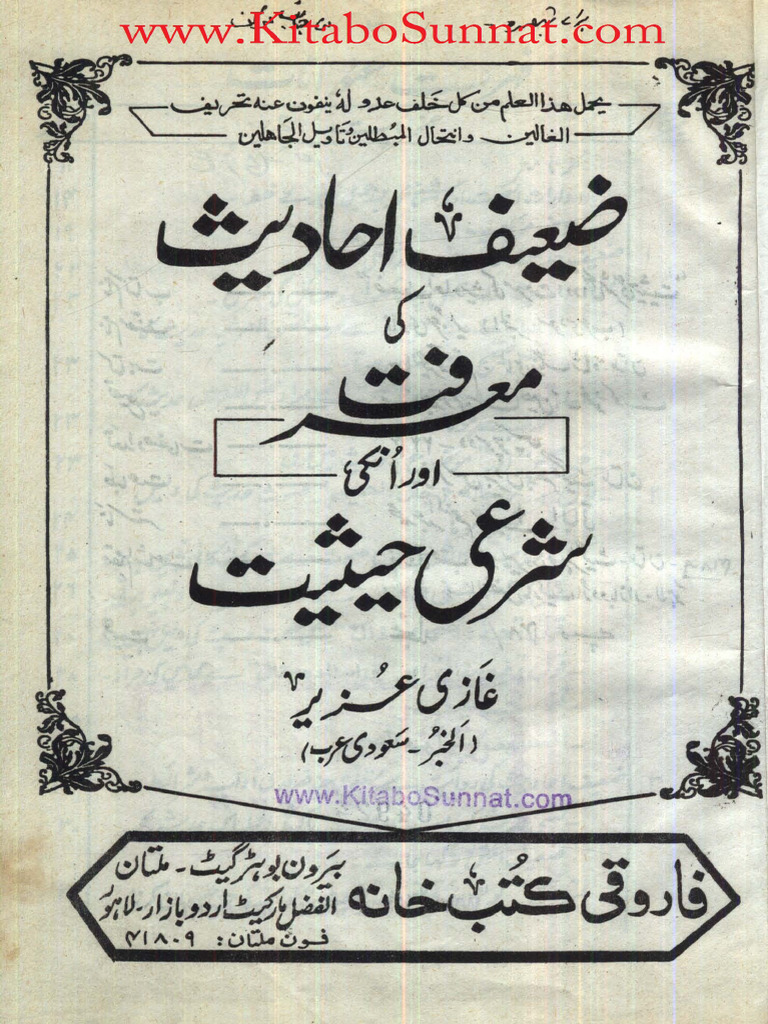 www.KitaboSunnat.com
يحمل هذا العلم من كل خلف عدوله ينفون عنه تحريف
الغالين وانتحال المبطلين وتاويل الجاهلين
ضعیف احادیث
کی
معرفت
اور اُنکی
شرعی حیثیت
غازی عُزیر
(الخبرُ - سعودی عرب)
www.KitaboSunnat.com
فاروقی کتُب خانہ
بیرون بوہڑ گیٹ - ملتان
الفضل مارکیٹ اردو بازار - لاہور
فون ملتان: ۴۱۸۰۹